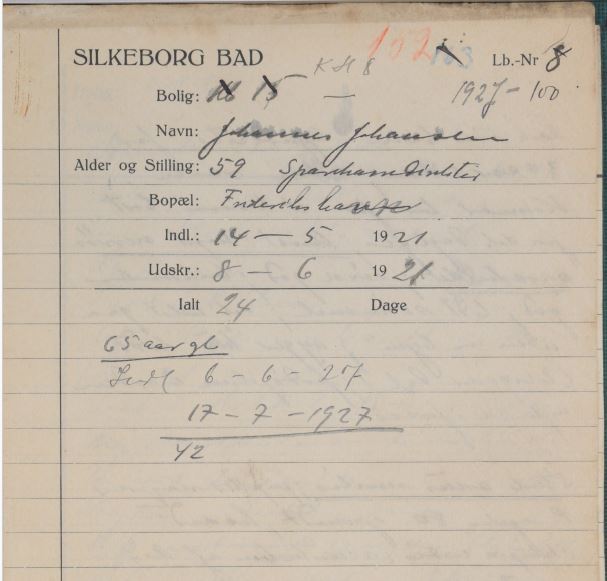 102 163
SILKEBORG BAD KH 8 Lb.-Nr 8
Bolig: 15 — 1927 - 100
Navn: Johannes Johansen
Alder og Stilling: 59 Sparekassedirektør
Bopæl: Frederikshavn
Indl.: 14 — 5 1921
Udskr.: 8 — 6 1921
Ialt 24 Dage
65 aar gl
Indl 6 - 6 - 27
17 - 7 - 1927
42